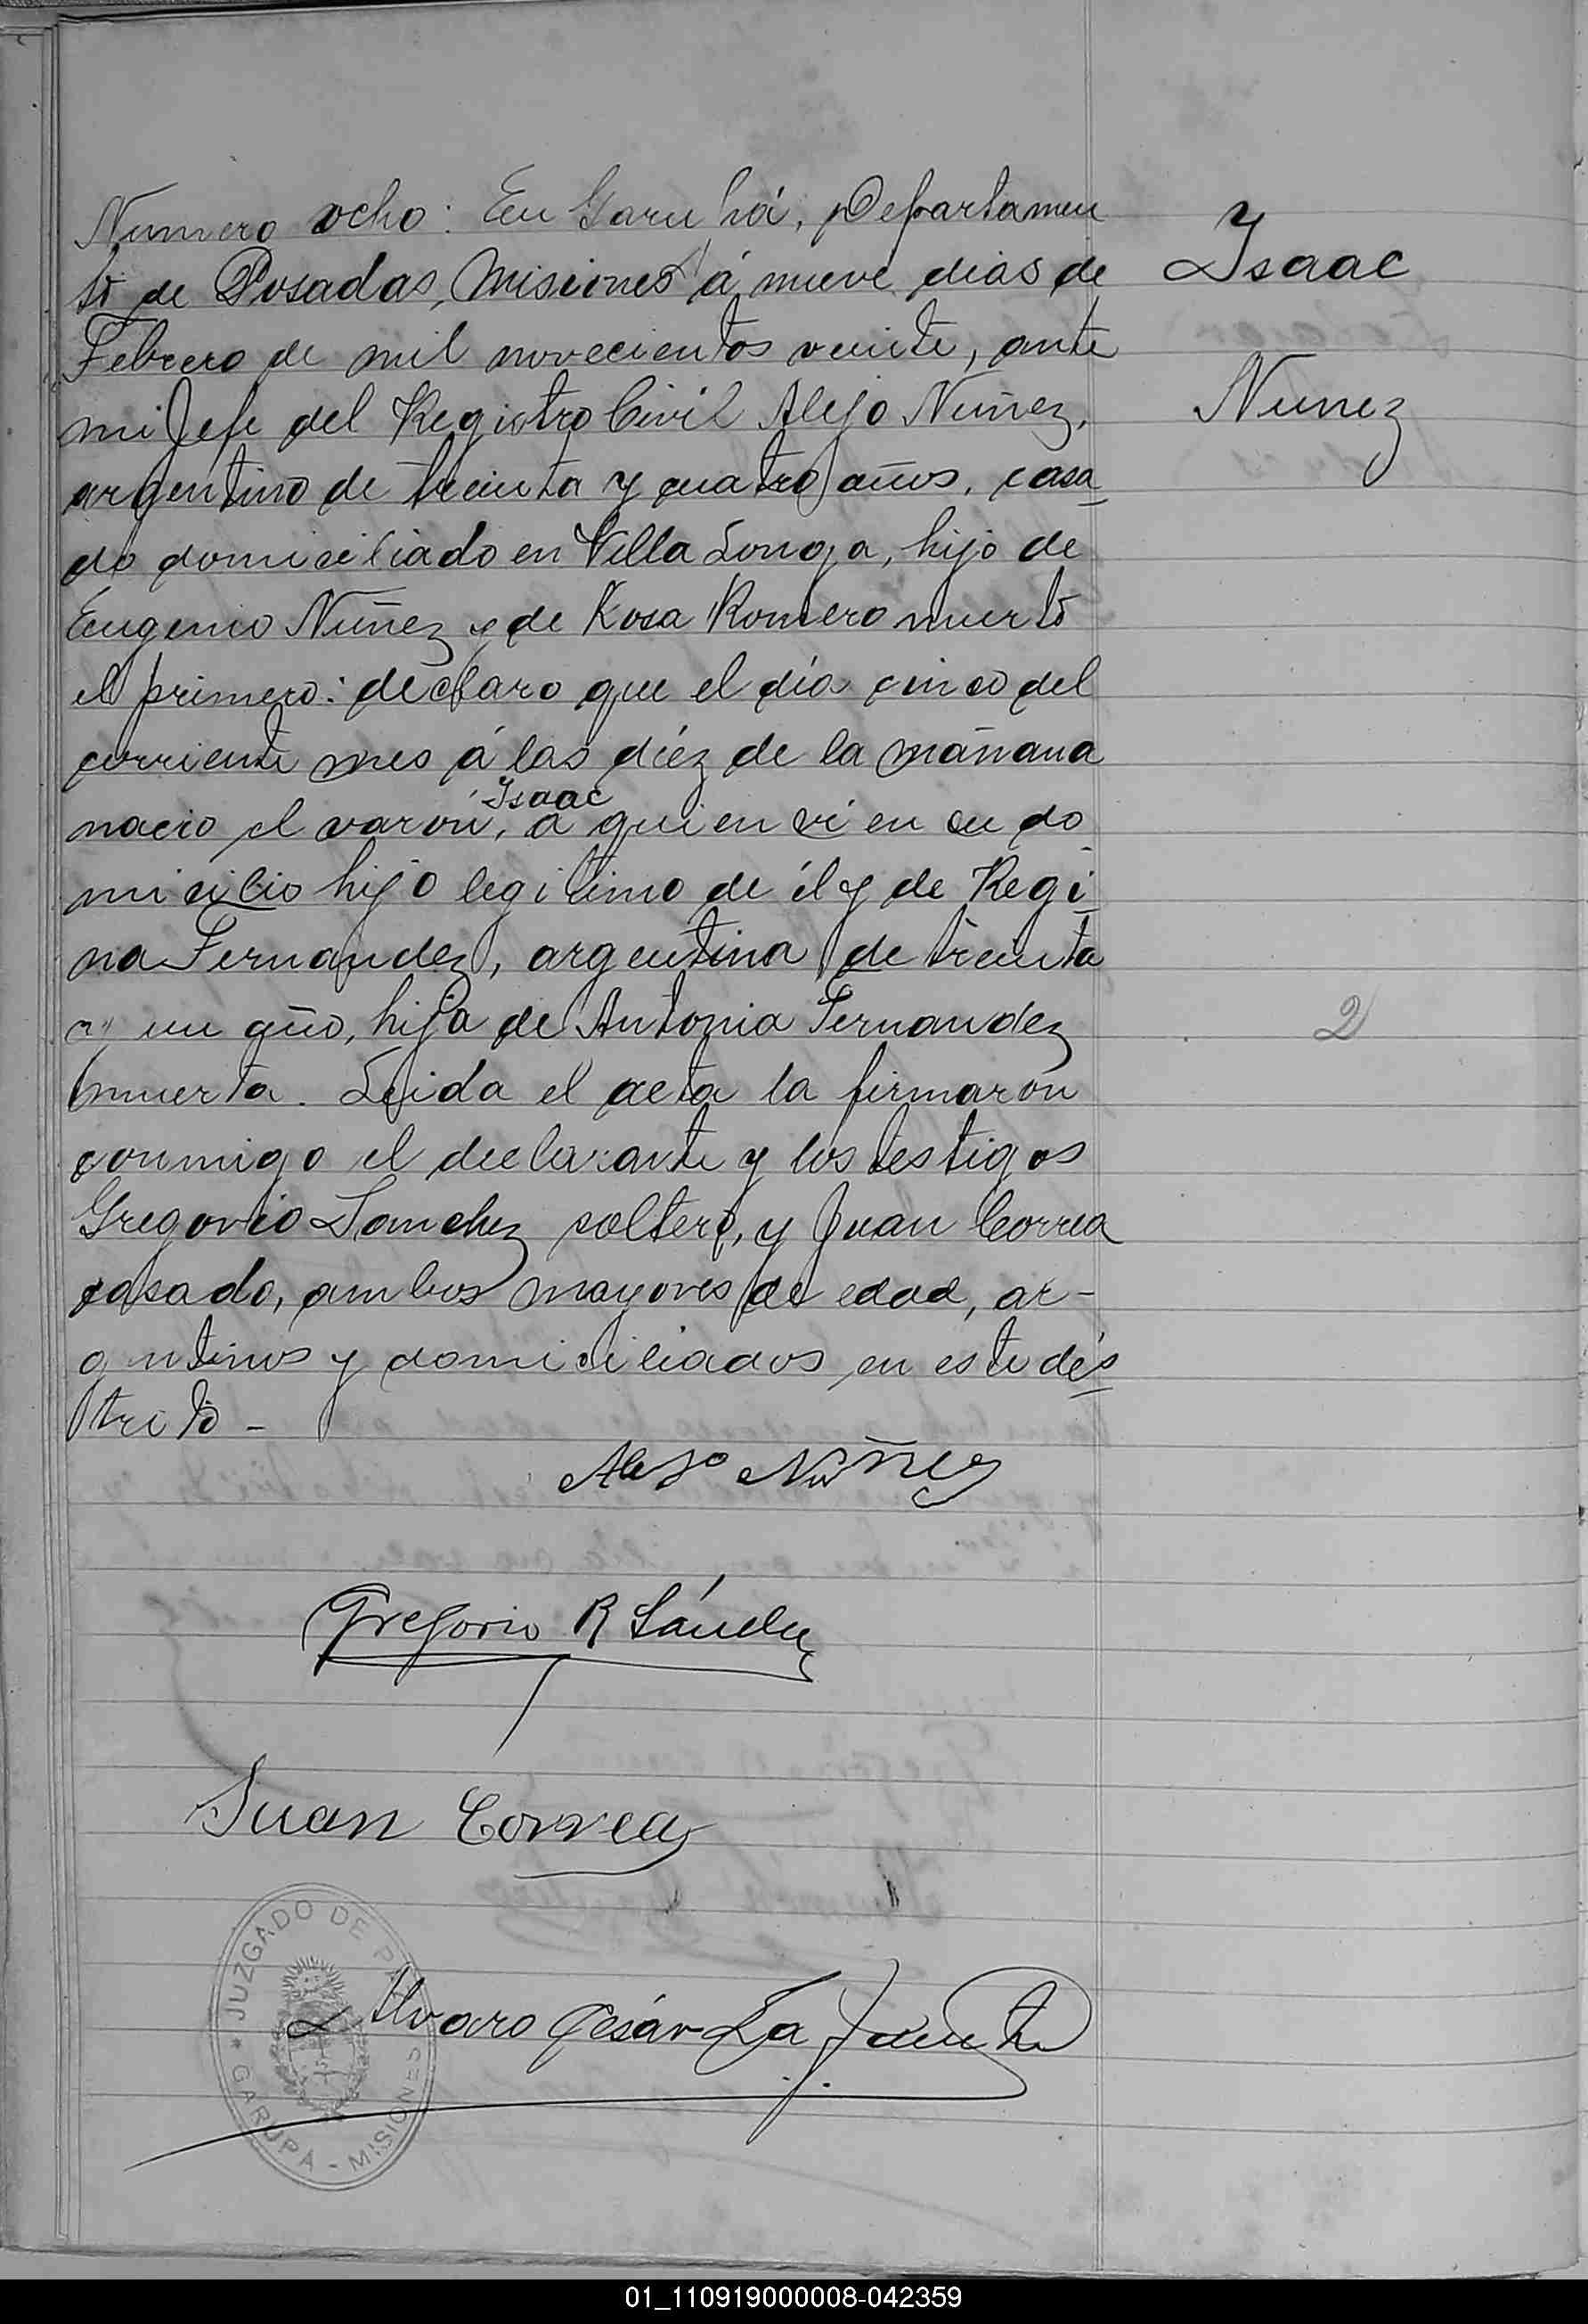 Numero ocho: En Garupá, Departamen
to de Posadas, Misiones á nueve dias de
Febrero de mil novecientos veinte, ante
mi Jefe del Registro Civil Alejo Nuñez,
argentino de treinta y cuatro años, casa
do domiciliado en Villa Longa, hijo de
Eugenio Nuñez y de Rosa Romero muerto
el primero: declaro que el día cinco del
corriente mes á las diéz de la mañana
Isaac
nacio el varon, a quien ví en su do
micilio hijo legitimo de él y de Regi
na Fernandez, argentina de treinta
y un año, hija de Antonia Fernandez
muerta. Leida el acta la firmaron
conmigo el declarante y los testigos
Gregorio Sanchez soltero, y Juan Correa
casado, ambos mayores de edad, ar-
gentinos y domiciliados en este dis
trito -
Isaac
Nunez
2
Alejo Núñez
Gregorio R Sánchez
Juan Correa
Alvaro César La
JUZGADO DE PAZ
GARUPÁ - MISIONES
01_110919000008-042359